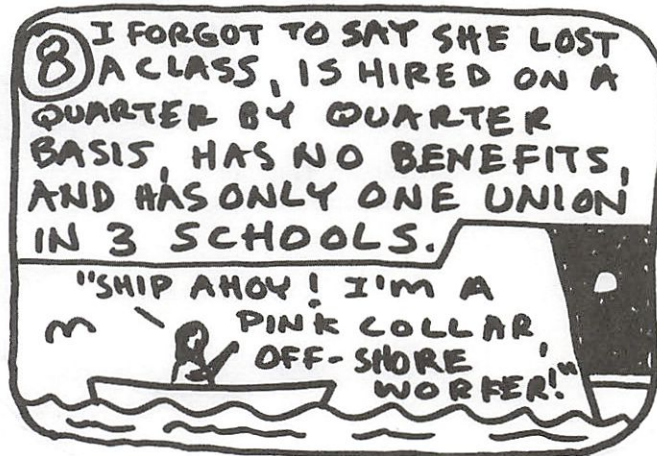 8 I FORGOT TO SAY SHE LOST
A CLASS, IS HIRED ON A
QUARTER BY QUARTER
BASIS, HAS NO BENEFITS,
AND HAS ONLY ONE UNION
IN 3 SCHOOLS.
"SHIP AHOY! I'M A
PINK COLLAR,
OFF-SHORE
WORKER!"